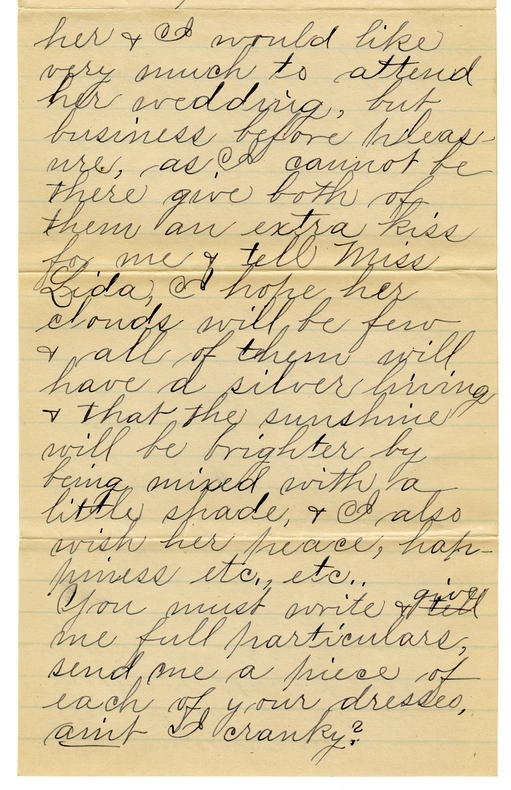 her & I would like
very much to attend
her wedding, but
business before pleas-
ure, as I cannot be
there give both of
them an extra kiss
for me & tell Miss
Lida, I hope her
clouds will be few
& all of them will
have a silver lining
& that the sunshine
will be brighter by
being mixed with a
little shade, & I also
wish her peace, hap-
piness etc., etc..
You must write & tell give
me full particulars,
send me a piece of
each of your dresses,
aint I cranky?